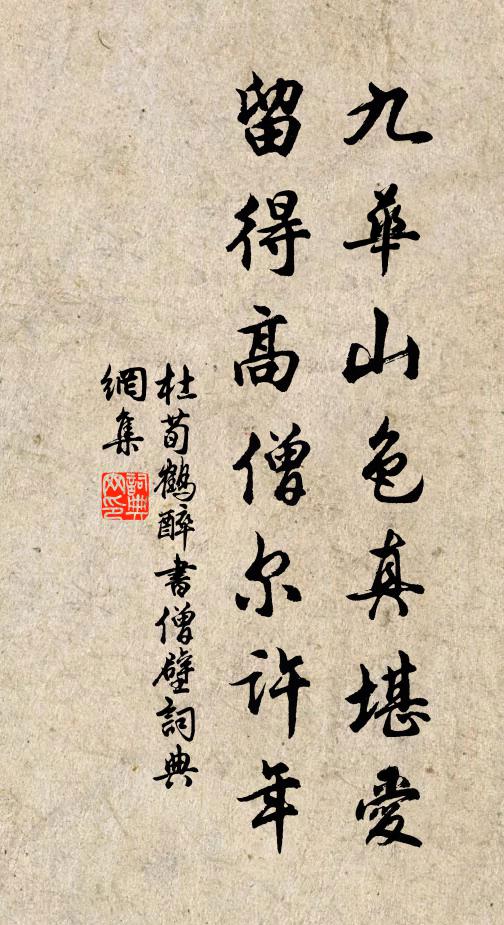 九華山色真堪愛
留得高僧尔許年
杜荀鶴醉書僧壁詞典
網集
詞典
网印